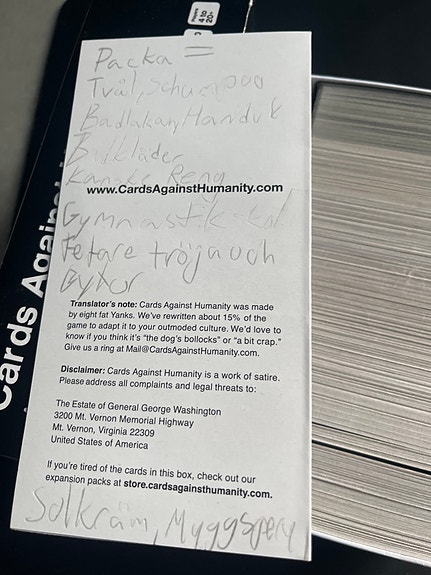 Players
4 to
20+
Cards Against
Packa =
Tvål, Schampoo
Badlakan, Handuk
kläder
Kanske Reng
www.CardsAgainstHumanity.com
Gymnastik
Fetare tröja och
Byxor
Translator's note: Cards Against Humanity was made
by eight fat Yanks. We've rewritten about 15% of the
game to adapt it to your outmoded culture. We'd love to
know if you think it's "the dog's bollocks" or "a bit crap."
Give us a ring at Mail@CardsAgainstHumanity.com.
Disclaimer: Cards Against Humanity is a work of satire.
Please address all complaints and legal threats to:
The Estate of General George Washington
3200 Mt. Vernon Memorial Highway
Mt. Vernon, Virginia 22309
United States of America
If you're tired of the cards in this box, check out our
expansion packs at store.cardsagainsthumanity.com.
Solkräm, Myggsperj